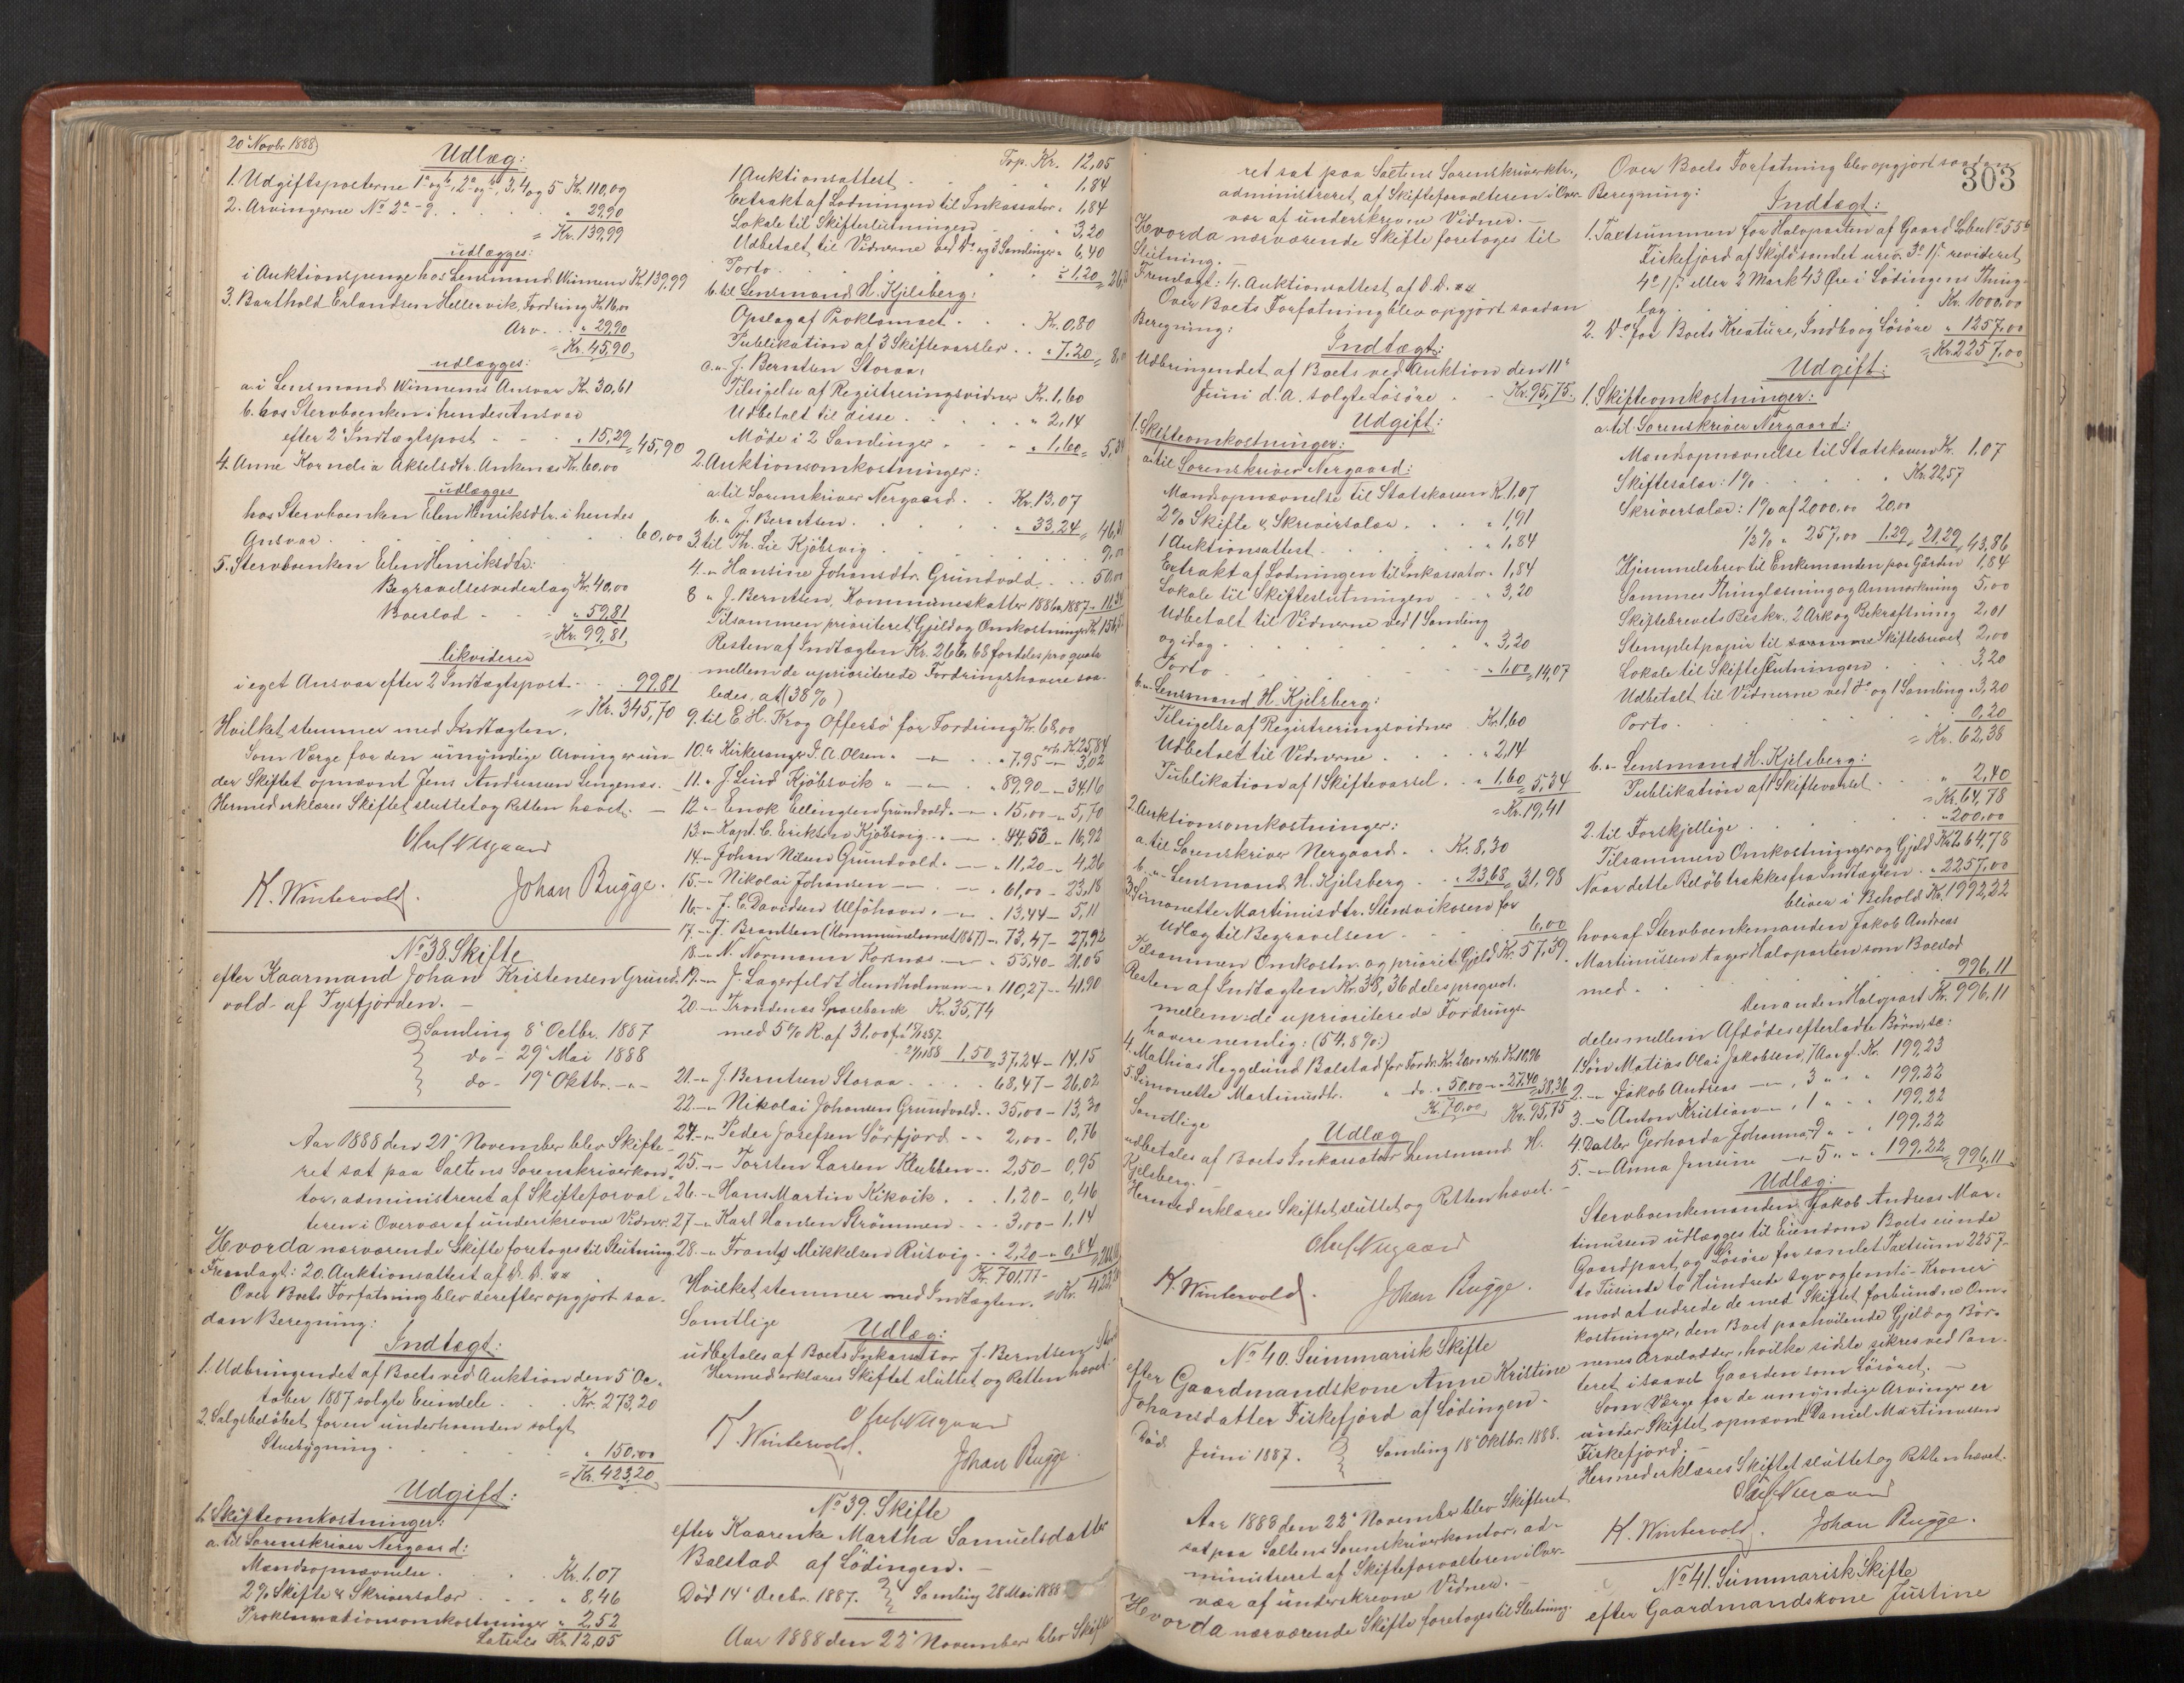 20' Novbr 1888
Udlæg:
1. Udgiftsposterne 1a og b, 2a og b, 3, 4 og 5 Kr. 110,09
2. Arvingerne No 2a-g. " 29,90
= Kr. 139,99
udlægges:
i Auktionspenge hos Lensmand Winnem Kr. 139,99
3. Barthold Erlandsen Hellervik, Fordring Kr. 16,00
Arv. " 29,90
= Kr. 45,90
udlægges:
a. i Lensmand Winnems Ansvar Kr. 30,61
b. hos Stervboenken i hendes Ansvar
efter 2' Indtægtspost " 15,29 = 45,90
4. Anne Kornelia Akselsdtr. Ankenes Kr. 60,00
udlægges
hos Stervboenken Elen Henriksdtr. i hendes
Ansvar 60,00
5. Stervboenken Elen Henriksdtr.
Begravelsesvederlag Kr. 40,00
Boeslod " 59,81
= Kr. 99,81
likviderer
i eget Ansvar efter 2 Indtægtspost 99,81
= Kr. 345,70
Hvilket stemmer med Indtægten.
Som Værge for den umyndige Arving er un-
der Skiftet opnævnt Jens Andersen Lengenes.
Hermed erklæres Skiftet sluttet og Retten hævet.
K. Wintervold. Johan Bugge.
No 38. Skifte
efter Kaarmand Johan Kristensen Grund-
vold af Tysfjorden.
Samling 8' Octbr. 1887
do - 29' Mai 1888
do - 19' Oktbr. -"-
Aar 1888 den 21' November blev Skifte-
ret sat paa Saltens Sorenskriverkon-
tor, administreret af Skifteforval-
teren i Overvær af underskrevne Vidner.
Hvorda nærværende Skifte foretoges til Slutning.
Fremlagt: 20. Auktionsattest af D. D. xx
Over Boets Forfatning blev derefter opgjort saa-
dan Beregning:
Indtægt:
1. Udbringendet af Boets ved Auktion den 5' Oc-
tober 1887 solgte Eiendele Kr. 273,20
2. Salgsbeløbet for en underhaanden solgt
Stuebygning " 150,00
= Kr. 423,20
Udgift:
1. Skifteomkostninger:
a. til Sorenskriver Nergaard:
Mandsopnævnelse Kr. 1,07
2% Skifte & Skriversalær " 8,46
Proklamationsomkostninger " 2,52
Lateres Kr. 12,05
Trp. Kr. 12,05
1 Auktionsattest " 1,84
Extrakt af Lodningen til Inkassator " 1,84
Lokale til Skifteslutningen " 3,20
Udbetalt til Vidnerne ved do og 3 Samlinger " 6,40
Porto " 1,20
b. til Lensmand H. Kjelsberg:
Opslag af Proklamaet Kr. 0,80
Publikation af 3 Skiftevarsler " 7,20
c. " J. Berntsen Storaa:
Tilsigelse af Registreringsvidner Kr. 1,60
Udbetalt til disse " 2,14
Møde i 2 Samlinger " 1,60
2. Auktionsomkostninger:
a. til Sorenskriver Nergaard Kr. 13,07
b. " J. Berntsen " 33,24
3. til Th. Lie Kjöbsvig
4. " Hansine Johansdtr. Grundvold 50,00
8 " J. Berntsen, Kommuneskatter 1886 & 1887
Tilsammen prioriteret Gjeld og Omkostninger
Resten af Indtægten Kr. 266,68 fordeles pro quota
mellem de uprioriterede Fordringshavere saa-
ledes, at (38%)
9. til E. H. Krog Offersö for Fordring Kr. 68,00
erh. Kr. 25,84
10. " Kirkesanger J. A. Olsen " 7,95 - 3,02
11. " J. Lund Kjöbsvik " 89,90 - 34,16
12 " Enok Ellingsen Grundvold " 15,00 - 5,70
13 " Kapt. C. Eriksen Kjöbsvig " 44,53 - 16,92
14 " Johan Nilsen Grundvold " 11,20 - 4,26
15. " Nikolai Johansen " 61,00 - 23,18
16. " J. C. Davidsen Ulföhavn " 13,44 - 5,11
17. " J. Berntsen " 73,47 - 27,92
18. " N. Normann Korsnæs " 55,40 - 21,05
19. " J. Lagerfeldt Hundholmen " 110,27 - 41,90
20. " Trondenæs Sparebank Kr. 35,74
med 5% R. af 31.00 1,50 = 37,24 - 14,15
21. " J. Berntsen Storaa 68,47 - 26,02
22. " Nikolai Johansens Grundvold 35,00 - 13,30
24. " Peder Josefsen Sörfjord 2,00 - 0,76
25. " Torsten Larsen Klubben 2,50 - 0,95
26. " Hans Martin Kikvik 1,20 - 0,46
27 " Karl Hansen Strömmen 3,00 - 1,14
28. " Frants Mikkelsen Rusvig 2,20 - 0,84
Kr. 701,77
Hvilket stemmer med Indtægten.
Udlæg:
Samtlige
udbetales af Boets Inkassator J. Berntsen
Hermed erklæres Skiftet sluttet og Retten hævet.
K. Wintervold. Johan Bugge
No 39. Skifte
efter Kaarenke Martha Samuelsdatter
Balstad af Lödingen.
Død 14' Decbr. 1887. Samling 28 Mai 1888
Aar 1888 den 22' November blev Skifte-
303
ret sat paa Saltens Sorenskriverktr.,
administreret af Skifteforvalteren i Over-
vær af underskrevne Vidner.
Hvorda nærværende Skifte foretoges til
Slutning.
Fremlagt: 4. Auktionsattest af D. D. xx
Over Boets Forfatning blev opgjort saadan
Beregning:
Indtægt:
Udbringendet af Boets ved Auktion den 11'
Juni d. A. solgte Løsøre Kr. 95,75.
Udgift:
1. Skifteomkostninger:
a. til Sorenskriver Nergaard:
Mandsopnævnelse til Statskassen Kr. 1,07
2% Skifte & Skriversalær " 1,91
1 Auktionsattest " 1,84
Extrakt af Lodningen til Inkassator " 1,84
Lokale til Skifteslutningen " 3,20
Udbetalt til Vidnerne ved 1 Samling
og idag " 3,20
Porto " 1,00 = 14,07
b. " Lensmand H. Kjelsberg:
Tilsigelse af Registreringsvidner Kr. 1,60
Udbetalt til Vidnerne " 2,14
Publikation af 1 Skiftevarsel " 1,60 = 5,34
= Kr. 19,41
2. Auktionsomkostninger:
a. til Sorenskriver Nergaard Kr. 8,30
b. " Lensmand H. Kjelsberg " 23,68 = 31,98
3. Simonette Martinusdtr. Stensviksen for
Udlæg til Begravelsen 6,00
Tilsammen Omkostn. og priorit. Gjeld Kr. 57,39.
Resten af Indtægten Kr. 38,36 deles pro quot.
mellem de uprioriterede Fordrings-
havere nemlig: (54,8%)
4. Mathias Heggelund Balstad for Fordr. Kr. 20,00 erh. Kr. 10,96
5. Simonette Martinusdtr. " do " 50,00 " 27,40 = 38,36
Kr. 70,00 Kr. 95,75
Udlæg
Samtlige
udbetales af Boets Inkassator Lensmand H.
Kjelsberg.
Hermed erklæres Skiftet sluttet og Retten hævet.
K. Wintervold. Johan Bugge.
No 40. Summarisk Skifte
efter Gaardmandskone Anne Kristine
Johansdatter Fiskefjord af Lödingen.
Død
Juni 1887. Samling 18' Oktbr. 1888.
Aar 1888 den 22' November blev Skifteret
sat paa Saltens Sorenskriverkontor, ad-
ministreret af Skifteforvalteren i Over-
vær af underskrevne Vidner.
Hvorda nærværende Skifte foretoges til Slutning.
Over Boets Forfatning blev opgjort saadan
Beregning:
Indtægt:
1. Taxtsummen for Halvparten af Gaard Løbe No 55b
Fiskefjord af Skyld samlet urev. revideret
eller 2 Mark 43 Øre i Lödingens Thing-
lag Kr. 1000,00
2. Do for Boets Kreature, Indbo og Løsøre " 1257,00
= Kr. 2257,00
Udgift:
1. Skifteomkostninger:
a. til Sorenskriver Nergaard:
Mandsopnævnelse til Statskassen Kr. 1,07
Skiftesalær: 1% Kr. 22,57
Skriversalær: 1% af 2000,00 20,00
1/2% " 257,00 1,29 = 21,29 = 43,86
Hjemmelsbrev til Enkemanden paa Gården 1,84
Sammes Thinglæsning og Anmærkning 5,00
Skiftebrevets Beskr. 2 Ark og Bekræftning 2,01
Stempletpapir til Skiftebrevet 2,00
Lokale til Skifteslutningen 3,20
Udbetalt til Vidnerne ved do og 1 Samling 3,20
Porto 0,20
= Kr. 62,38
b. " Lensmand H. Kjelsberg:
Publikation af 1 Skiftevarsel " 2,40
= Kr. 64,78
2. til Forskjellige " 200,00
Tilsammen Omkostninger og Gjeld Kr. 264,78
Naar dette Beløb trækkes fra Indtægten " 2257,00
bliver i Behold Kr. 1992,22
hvoraf Stervboenkemanden Jakob Andreas
Martinussen tager Halvparten som Boeslod
med 996,11
Den anden Halvpart Kr. 996,11
deles mellem Afdødes efterladte Børn, sc:
1 Søn Matias Olai Jakobsen, 7 Aar gl. Kr. 199,23
2. " Jakob Andreas " 3 " 199,22
3. " Anton Kristian " 1 " 199,22
4. Datter Gerharda Johanna 9 " 199,22
5. " Anna Jensine " 5 " 199,22 = 996,11
Udlæg:
Stervboenkemanden Jakob Andreas Mar-
tinussen udlægges til Eiendom Boets eiende
Gaardpart og Løsøre for samlet Taxtsum 2257-
to Tusinde to Hundrede syvogfemti - Kroner
mod at udrede de med Skiftet forbundne Om-
kostninger, den Boet paahvilende Gjeld og Bør-
nenes Arvelodder, hvilke sidste sikres ved Pan-
teret i saavel Gaarden som Løsøret.
Som Værge for de umyndige Arvinger er
under Skiftet opnævnt Daniel Martinussen
Fiskefjord.
Hermed erklæres Skiftet sluttet og Retten hævet.
K. Wintervold. Johan Bugge.
No 41. Summarisk Skifte
efter Gaardmandskone Justine